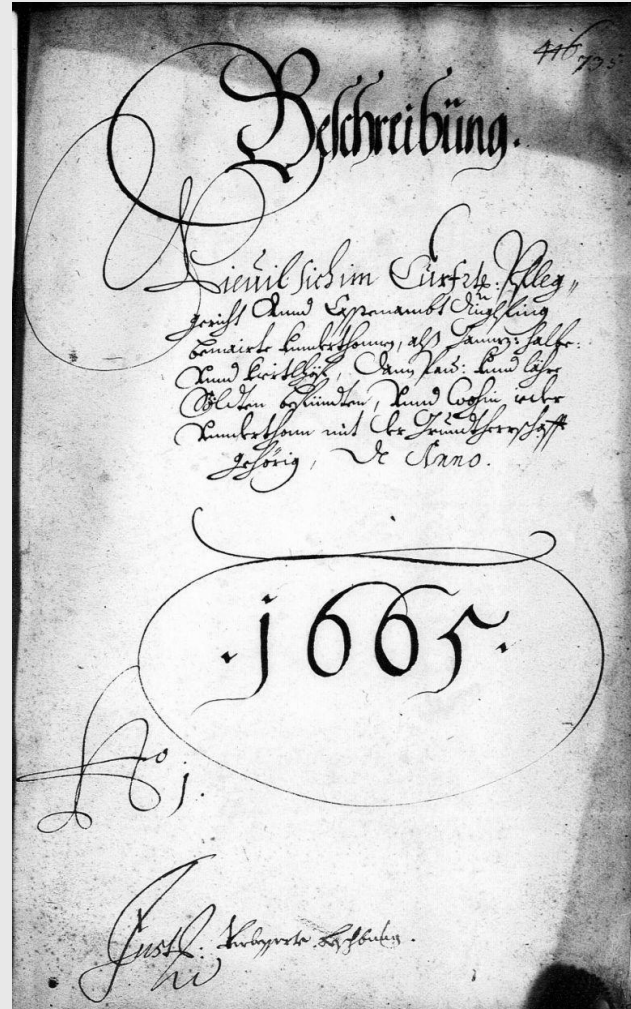 446
735
Beschreibüng.
Wieuil sich im Curfrtl: Pfleg„
gericht Vnnd Casstenambt
bemairte Vnnderthonnen, alß Gannz: halbe:
Vnnd Viertlhöf, Dann Pau: Vnnd lähre
Söldten befündten, Vnnd Wohin ieder
Vnnderthonn mit der Grundtherrschafft
gehörig, De Anno.
.1665.
No 1.